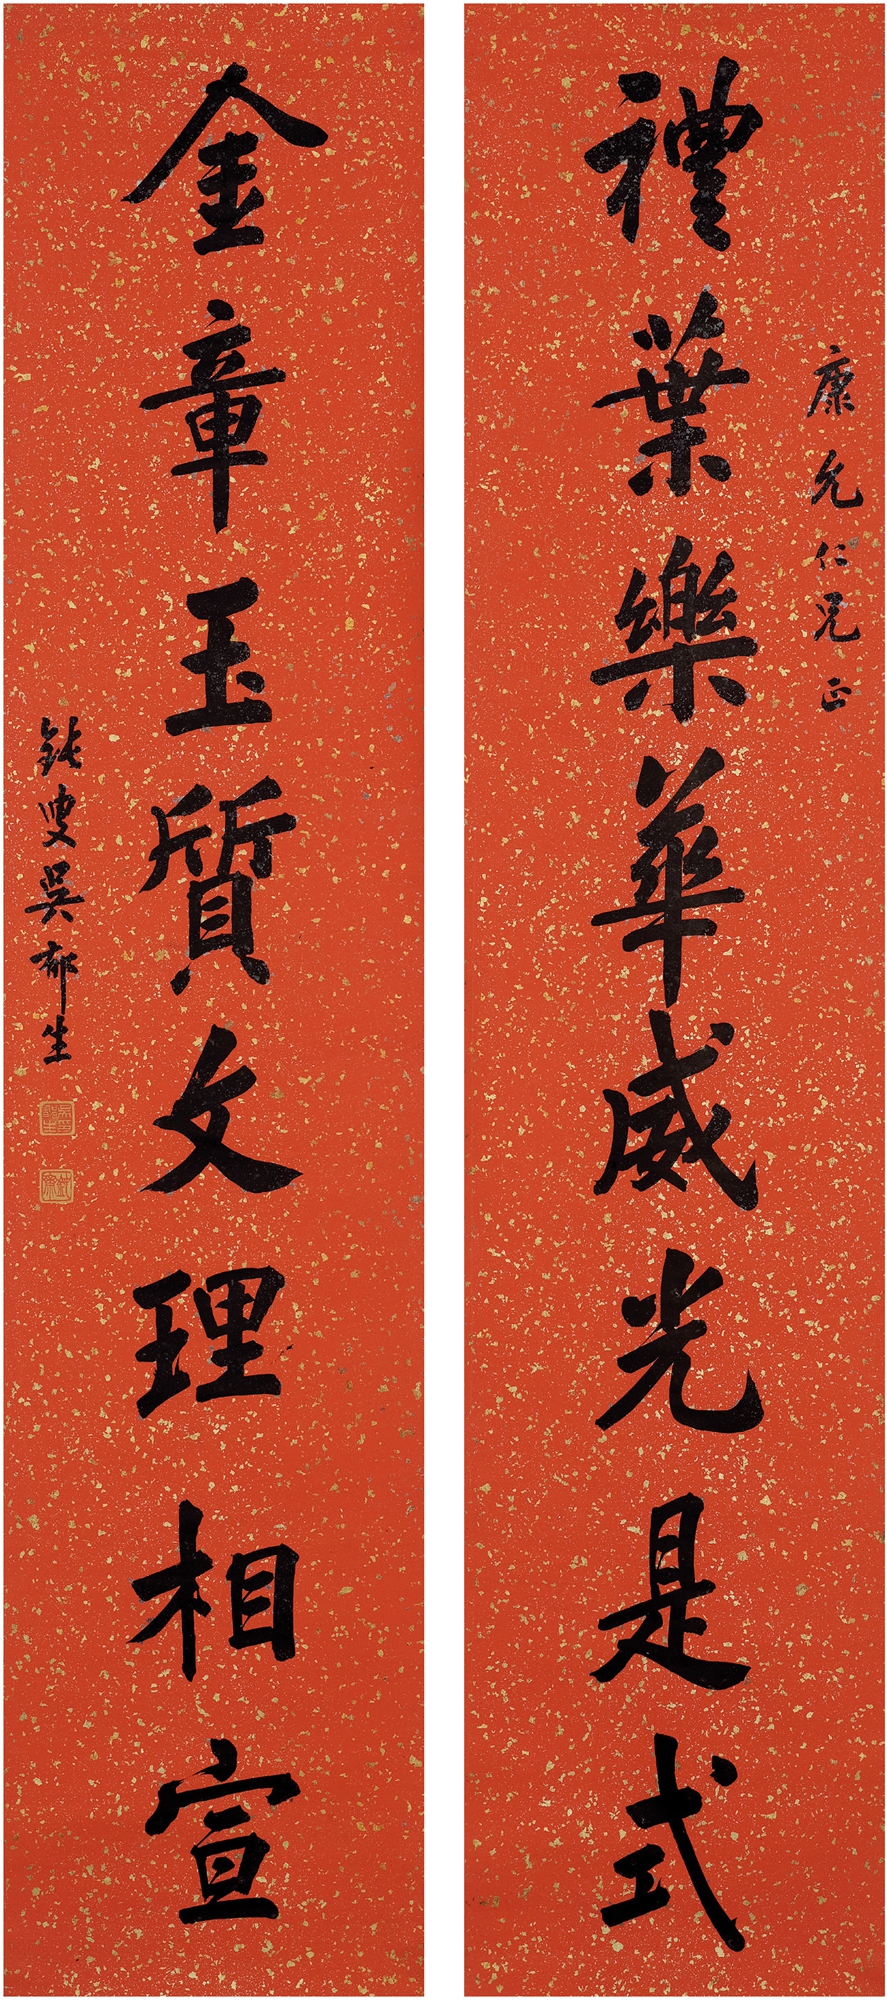 康允仁兄正
禮葉樂華威光是式
金章玉質文理相宣
鈍叟吳郁生